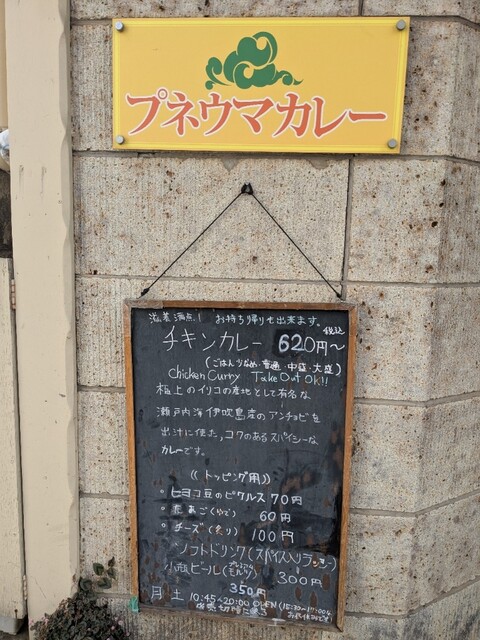 プネウマカレー
滋養満点! お持ち帰りも出来ます。
チキンカレー 620円〜 税込
(ごはん少なめ・普通・中盛・大盛)
Chicken Curry Take Out OK!!
極上のイリコの産地として有名な
瀬戸内海伊吹島産のアンチョビを
出汁に使た,コクのあるスパイシーな
カレーです。
((トッピング用))
° ヒヨコ豆のピクルス 70円
° たまご(ゆで) 60円
° チーズ(炙り) 100円
ソフトドリンク(スパイス入りラッシー)
小瓶ビール(プレミアムモルツ) 300円
350円
月 土 10:45〜20:00 OPEN